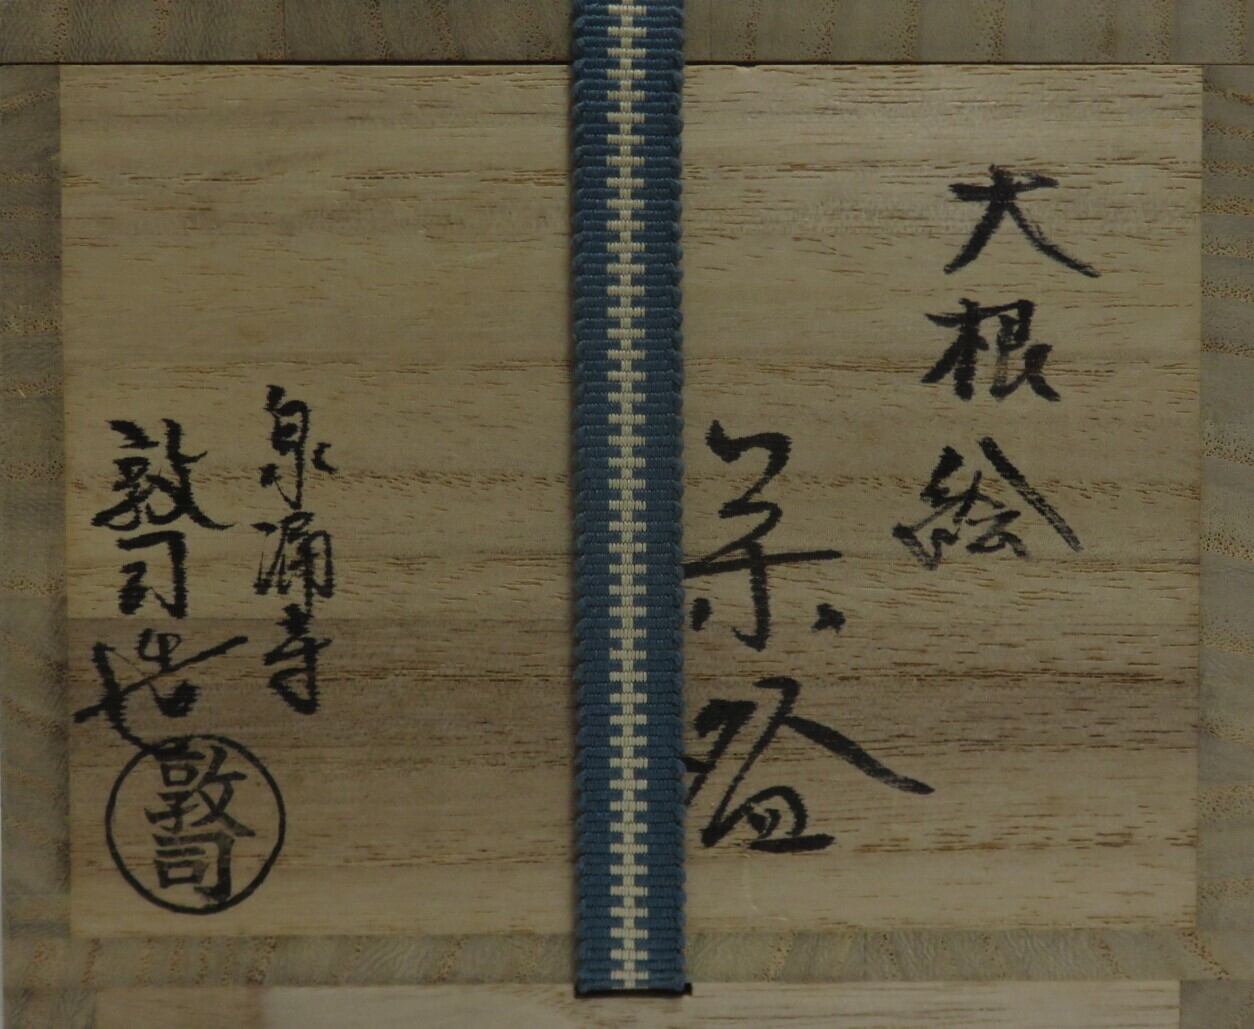 大根絵
茶盌
泉涌寺
敦司造
敦司